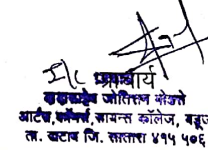 I/C प्राचार्य
जोतिराम गोडसे
आर्टस्, कॉमर्स, सायन्स कॉलेज, वडूज
ता. खटाव जि. सातारा ४१५ ५०६